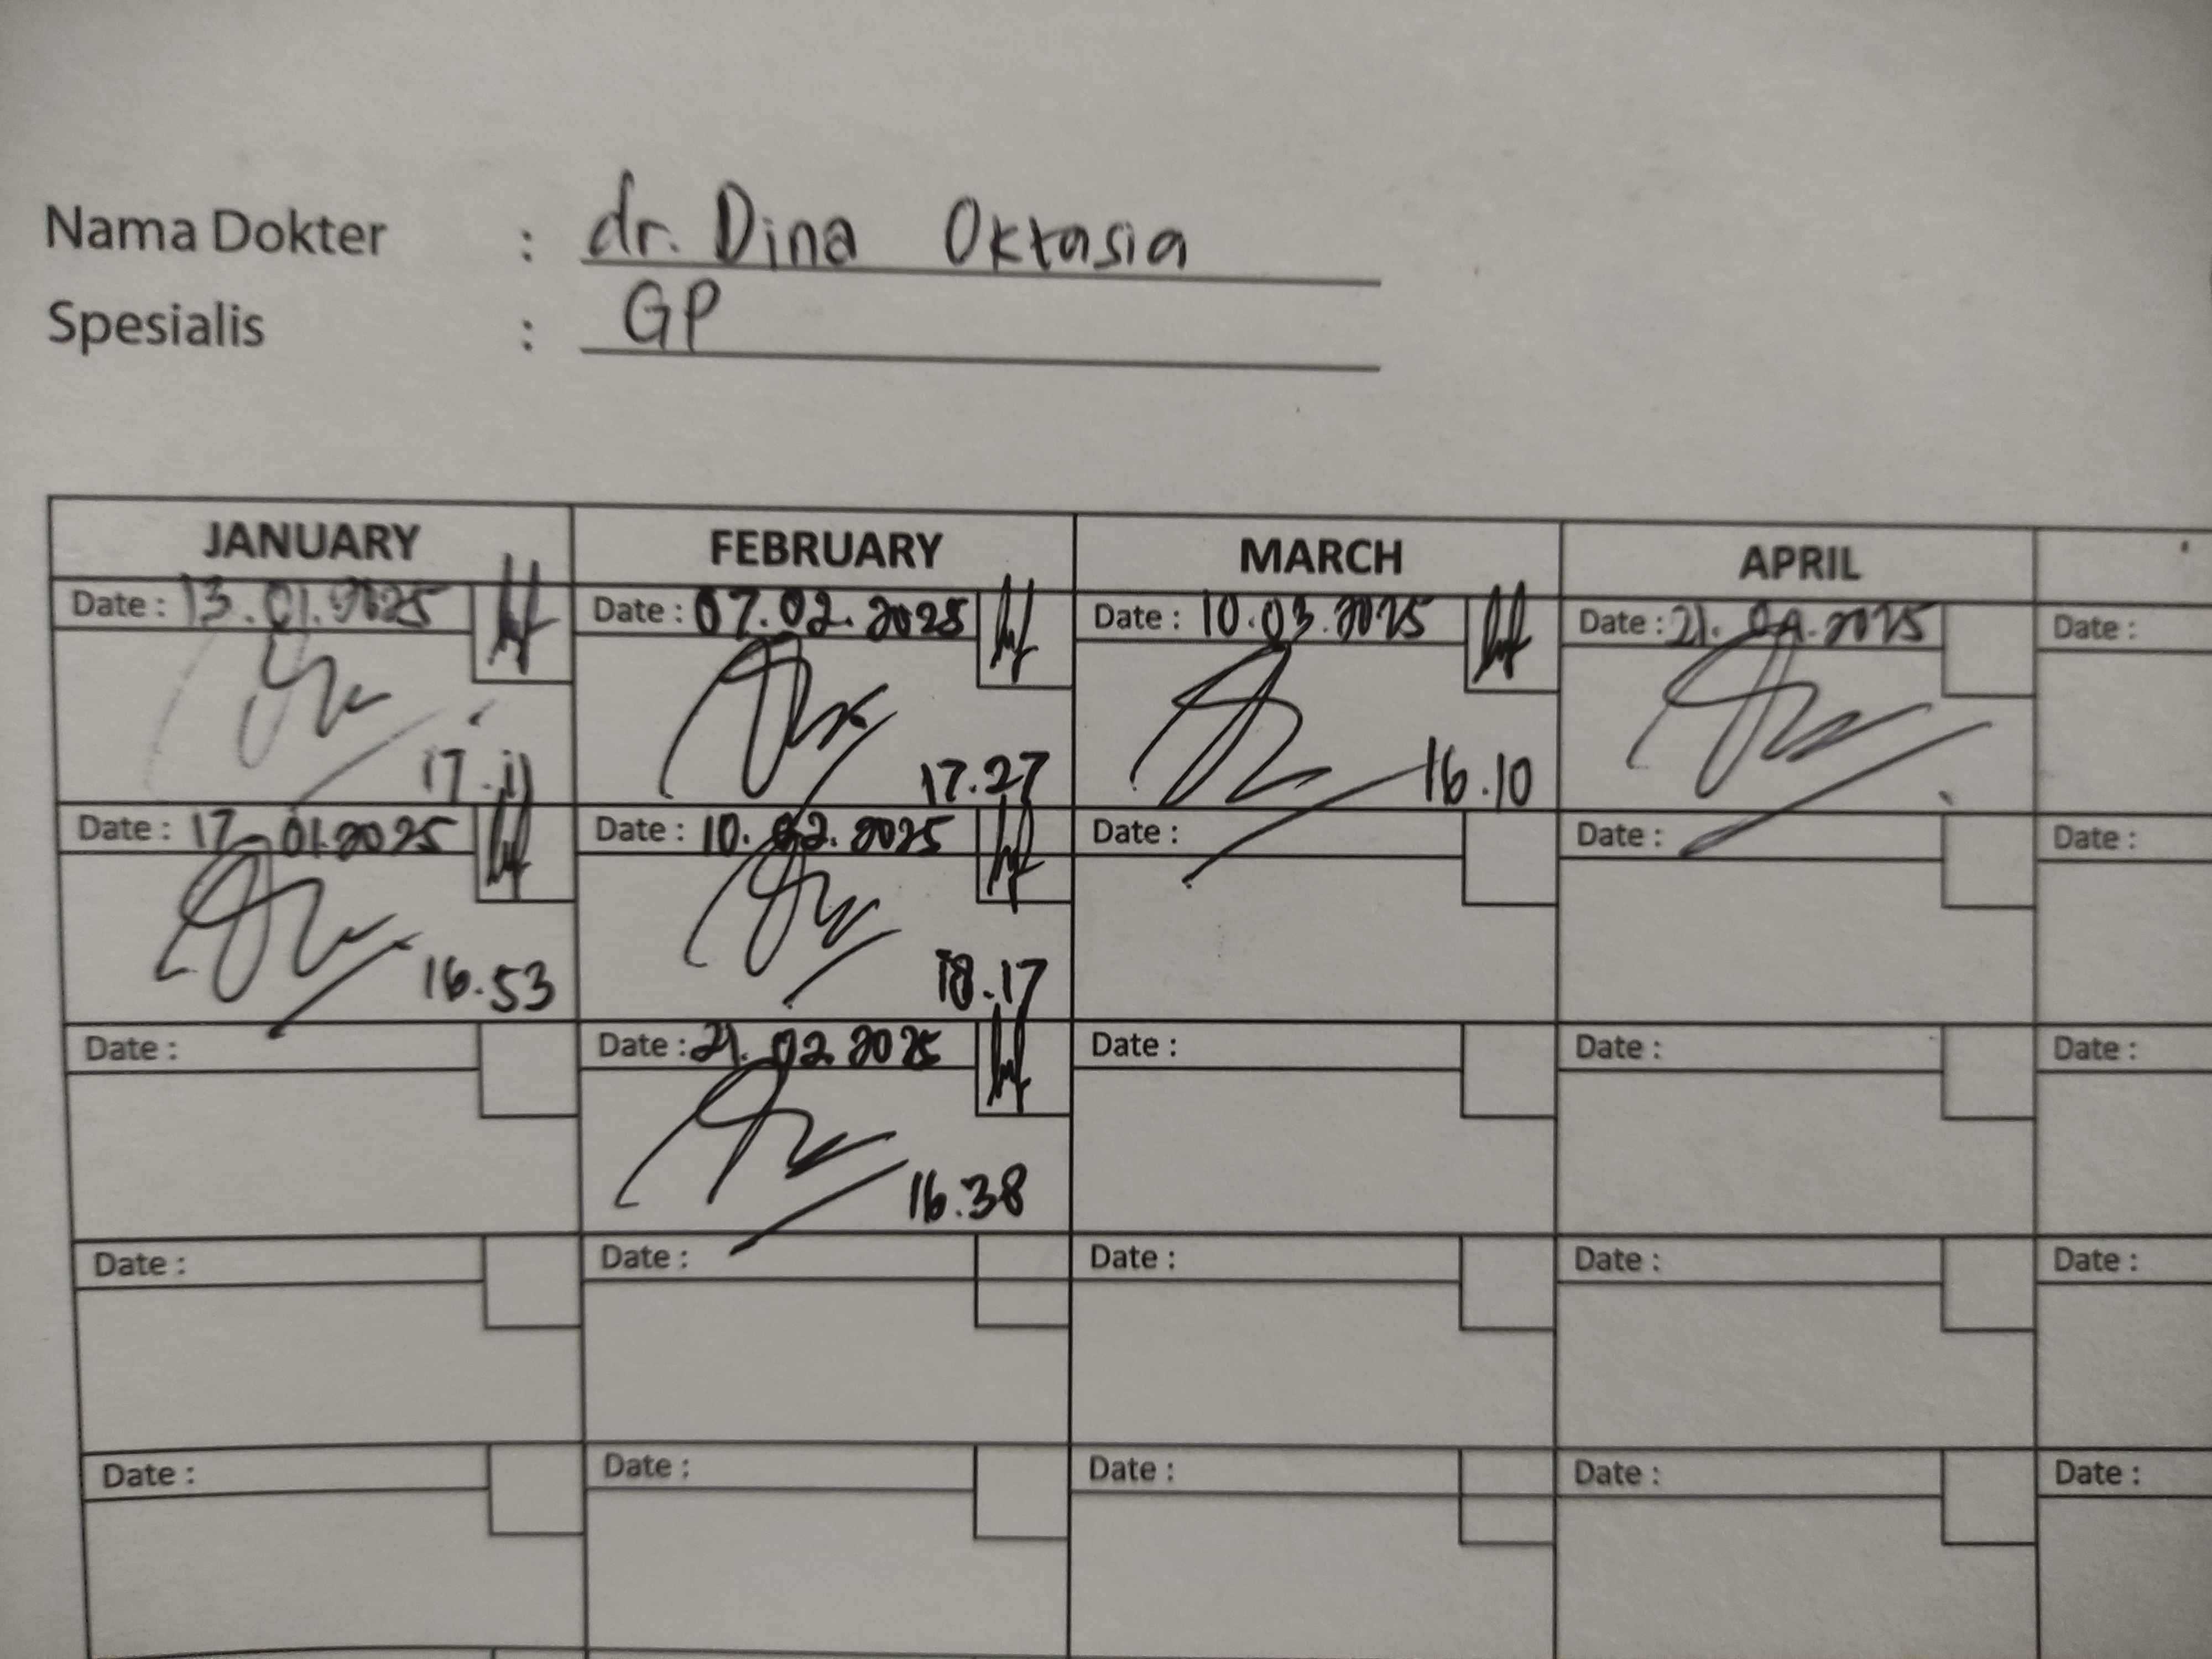 Nama Dokter : dr. Dina Oktasia
Spesialis : GP
JANUARY FEBRUARY MARCH APRIL
Date : 13.01.2025 Date : 07.02.2025 Date : 10.03.2025 Date : 21.04.2025 Date :
17.11 17.27 16.10
Date : 17.01.2025 Date : 10.02.2025 Date : Date : Date :
16.53 18.17
Date : Date : 21.02.2025 Date : Date : Date :
16.38
Date : Date : Date : Date : Date :
Date : Date : Date : Date : Date :